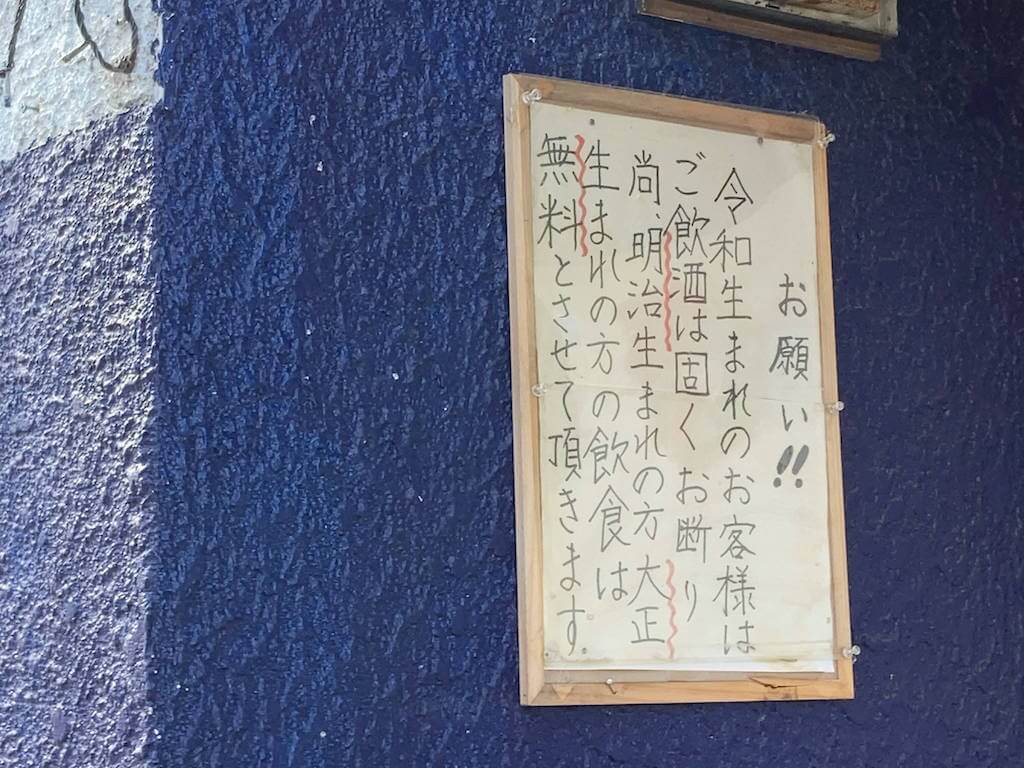 お願い!!
令和生まれのお客様は
ご飲酒は固くお断り
尚、明治生まれの方大正
生まれの方の飲食は
無料とさせて頂きます。